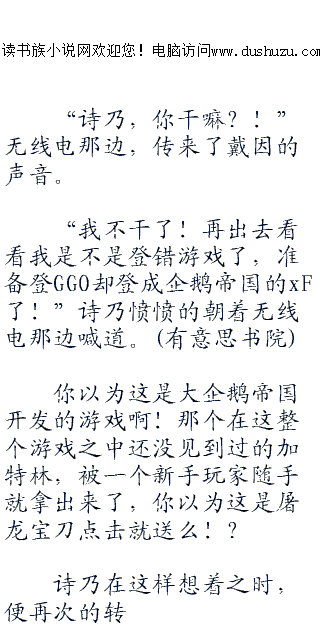 读书族小说网欢迎您！电脑访问www.dushuzu.com
“诗乃，你干嘛？！”
无线电那边，传来了戴因的
声音。
“我不干了！再出去看
看我是不是登错游戏了，准
备登GGO却登成企鹅帝国的xF
了！”诗乃愤愤的朝着无线
电那边喊道。(有意思书院)
你以为这是大企鹅帝国
开发的游戏啊！那个在这整
个游戏之中还没见到过的加
特林，被一个新手玩家随手
就拿出来了，你以为这是屠
龙宝刀点击就送么！？
诗乃在这样想着之时，
便再次的转